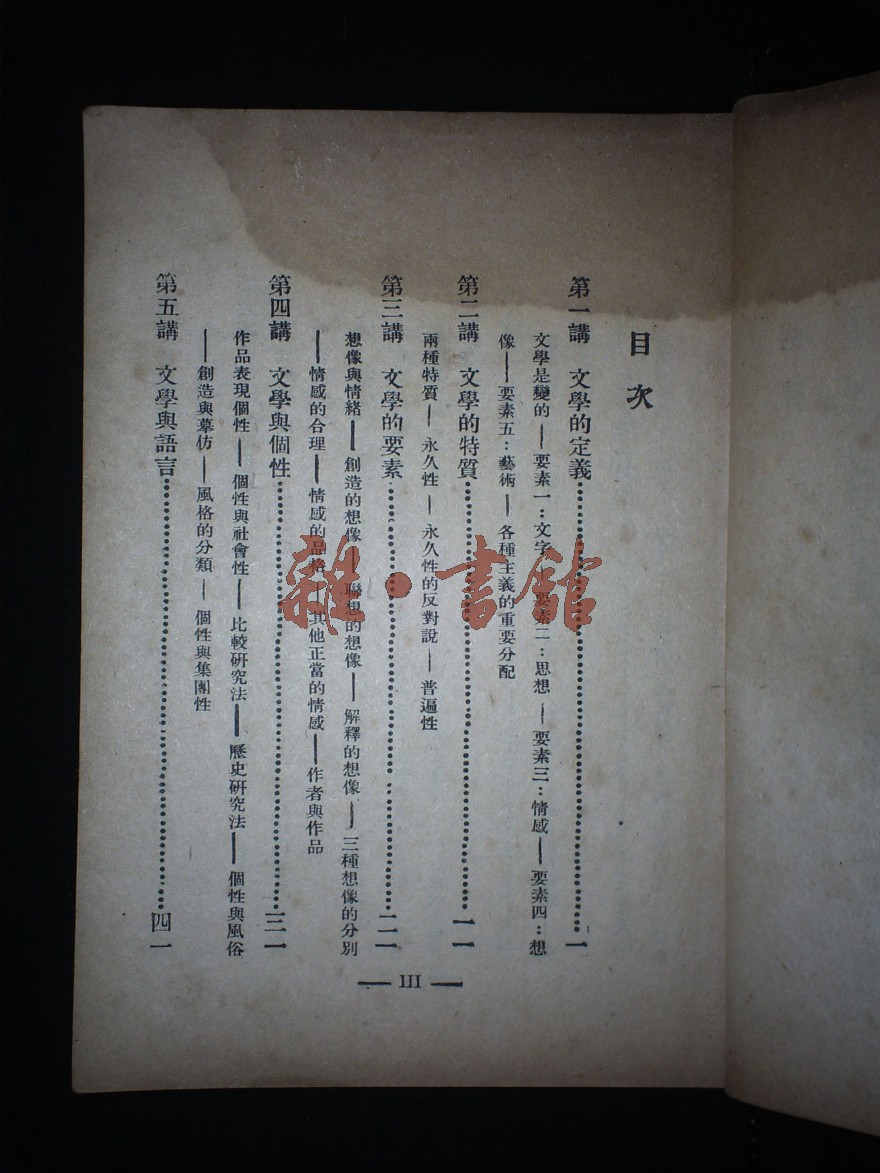 目次
第一講　文學的定義…………一
文學是變的——要素一：文字——要素二：思想——要素三：情感——要素四：想
像——要素五：藝術——各種主義的重要分配
第二講　文學的特質…………一一
兩種特質——永久性——永久性的反對說——普遍性
第三講　文學的要素…………二一
想像與情緒——創造的想像——聯想的想像——解釋的想像——三種想像的分別
——情感的合理——情感的品格——其他正當的情感——作者與作品
第四講　文學與個性…………三一
作品表現個性——個性與社會性——比較研究法——歷史研究法——個性與風俗
——創造與摹仿——風格的分類——個性與集團性
第五講　文學與語言…………四一
— III —
雜·書館